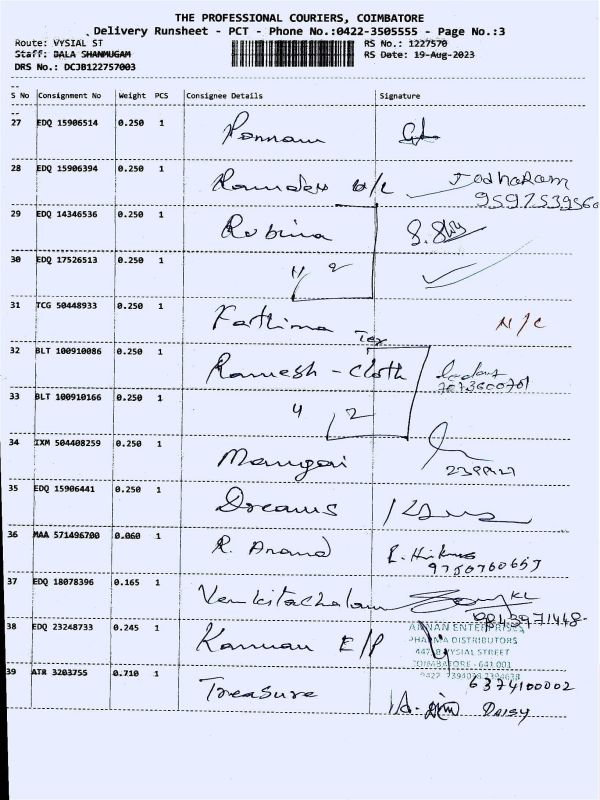 THE PROFESSIONAL COURIERS, COIMBATORE
Delivery Runsheet - PCT - Phone No.:0422-3505555 - Page No.:3
Route: VYSIAL ST RS No.: 1227570
Staff: DALA SHANMUGAM RS Date: 19-Aug-2023
DRS No.: DCJB122757003
S No Consignment No Weight PCS Consignee Details Signature
27 EDQ 15906514 0.250 1 Ponnam
28 EDQ 15906394 0.250 1 Ramdev Jodharam
9597539560
29 EDQ 14346536 0.250 1 Rubina
30 EDQ 17526513 0.250 1 " 2
31 TCG 50448933 0.250 1 Fathima N/C
Tex
32 BLT 100910086 0.250 1 Ramesh - Cloth
7073600701
33 BLT 100910166 0.250 1 2
34 IXM 504408259 0.250 1 Mangai
35 EDQ 15906441 0.250 1 Dreams
36 MAA 571496700 0.060 1 R. Anand
9750760655
37 EDQ 18078396 0.165 1 Venkitachalam
9843971448
38 EDQ 23248733 0.245 1 Kannan E/P
ANNAN ENTERPRISES
PHARMA DISTRIBUTORS
VYSIAL STREET
COIMBATORE - 641 001
6374100002
39 ATR 3203755 0.710 1 Treasure Daisy